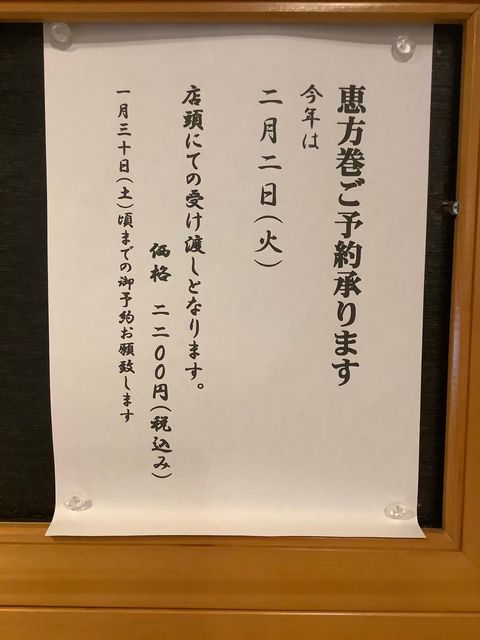 恵方巻ご予約承ります
今年は
二月二日(火)
店頭にての受け渡しとなります。
価格 二二００円(税込み)
一月三十日(土)頃までの御予約お願致します